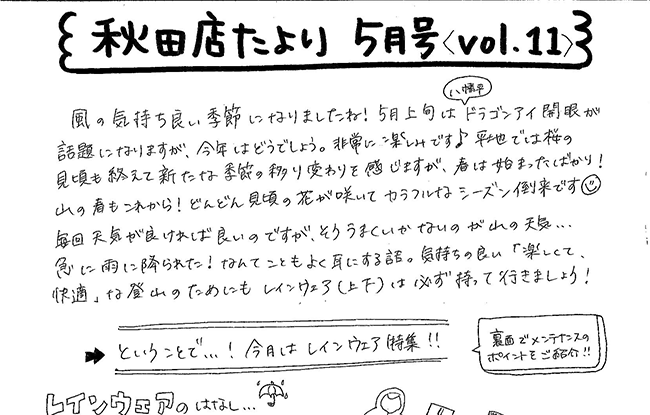 秋田店たより 5月号〈vol.11〉
八幡平
風の気持ち良い季節になりましたね！5月上旬はドラゴンアイ開眼が
話題になりますが、今年はどうでしょう。非常に楽しみです♪平地では桜の
見頃も終えて新たな季節の移り変わりを感じますが、春は始まったばかり！
山の春もこれから！どんどん見頃の花が咲いてカラフルなシーズン到来です☺
毎回天気が良ければ良いのですが、そううまくいかないのが山の天気…
急に雨に降られた！なんてこともよく耳にする話。気持ちの良い「楽しくて、
快適」な登山のためにもレインウェア（上下）は必ず持って行きましょう！
➡ ということで…！今月はレインウェア特集！！
裏面でメンテナンスの
ポイントをご紹介！！
レインウェアのはなし…